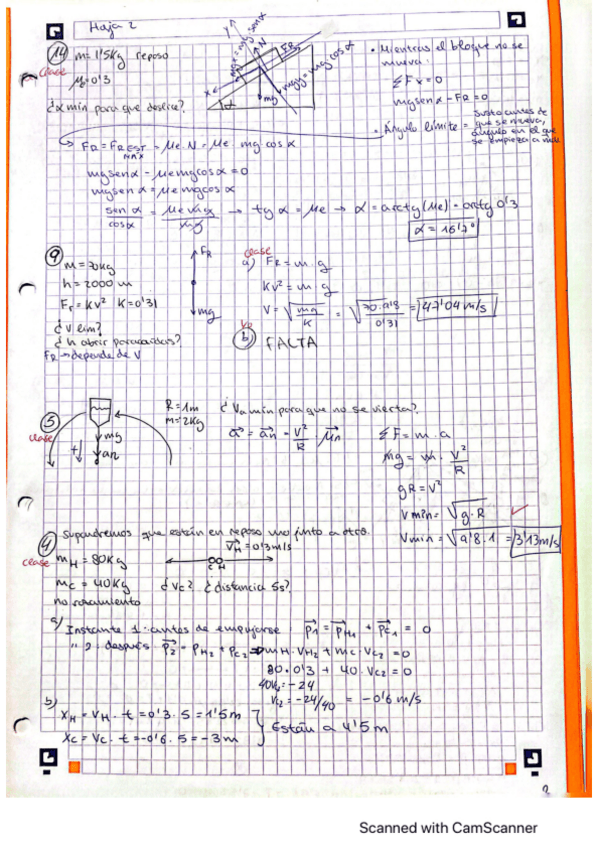 Hoja 2
14) m = 1'5Kg reposo
clase
μe = 0'3
¿α min para que deslice?
Y
N
FR
X
mgx = mg·senα
mgy = mg cos α
mg
α
• Mientras el bloque no se mueva:
ΣFx = 0
mgsenα - FR = 0
• Ángulo límite = Justo antes de que se mueva, ángulo en el que se empieza a
FR = FR EST MAX = μe·N = μe mg cos α
mgsenα - μe mgcosα = 0
mgsenα = μe mgcosα
senα/cosα = μe mg/mg → tgα = μe → α = arctg(μe) = arctg 0'3
α = 16'7°
9) m = 70kg
h = 2000 m
Fr = KV² K = 0'31
¿V lim?
¿h abrir paracaídas?
FR → depende de V
FR
mg
clase
a) FR = m·g
KV² = m·g
V = √(mg/K) = √(70·9'8/0'31) = 47'04 m/s
b) FALTA
5)
clase
mg
+
an
R = 1m
m = 2Kg
¿Va min para que no se vierta?
a = an = V²/R · μn
ΣF = m·a
mg = m · V²/R
gR = V²
Vmín = √g·R
Vmin = √9'8·1 = 3'13m/s
4) Supondremos que están en reposo uno junto a otro.
clase
mH = 80Kg
VH = 0'3m/s
C H
mc = 40Kg
¿Vc? ¿distancia 5s?
no rozamiento
a) Instante 1: antes de empujarse p1 = pH1 + pC1 = 0
" 2: después p2 = pH2 + pC2 ⇒ mH·VH2 + mc·VC2 = 0
80·0'3 + 40·VC2 = 0
VC2 = -24/40 = -0'6 m/s
b) XH = VH·t = 0'3·5 = 1'5m
XC = VC·t = -0'6·5 = -3m
Están a 4'5m
2
Scanned with CamScanner